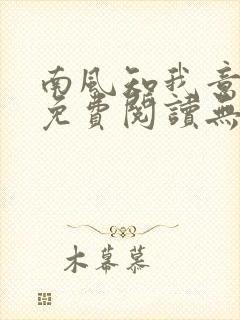 南风知我意
免費閱讀無
木幕慕